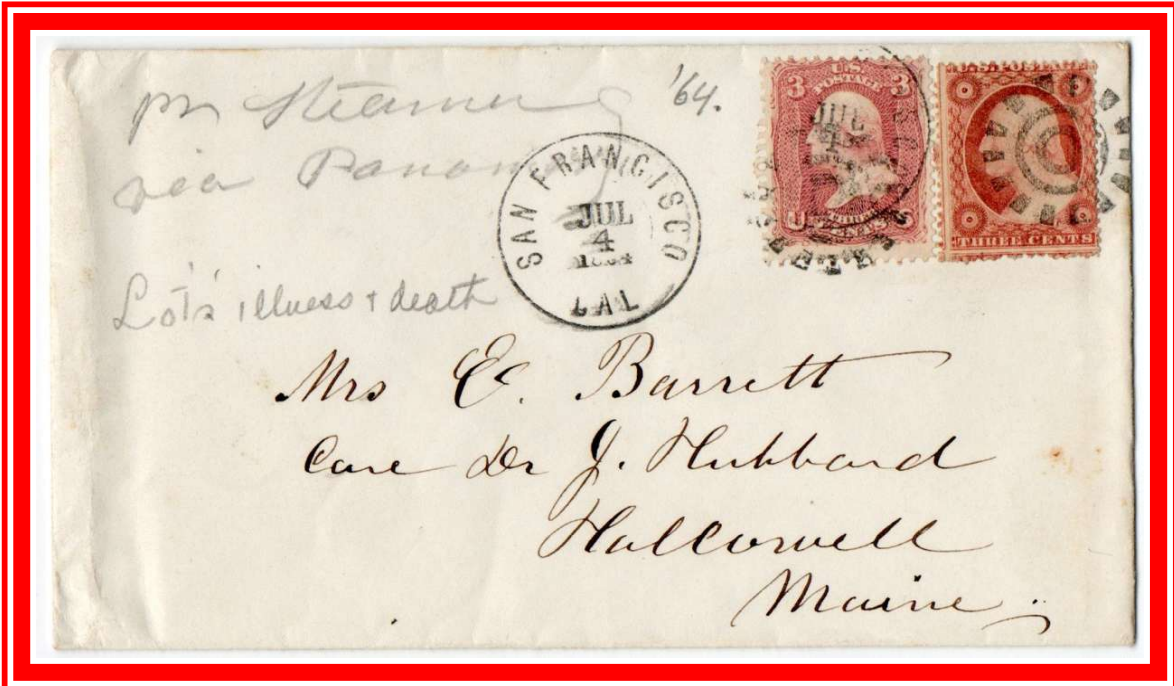 pr Steamer
via Panama
'64.
Lot's illness + death
SAN FRANCISCO
JUL
4
1864
CAL
3 U.S. 3
POSTAGE
JUL
4
U THREE CENTS S
U.S. POSTAGE
THREE CENTS
Mrs E. Barrett
Care Dr J. Hubbard
Hallowell
Maine.